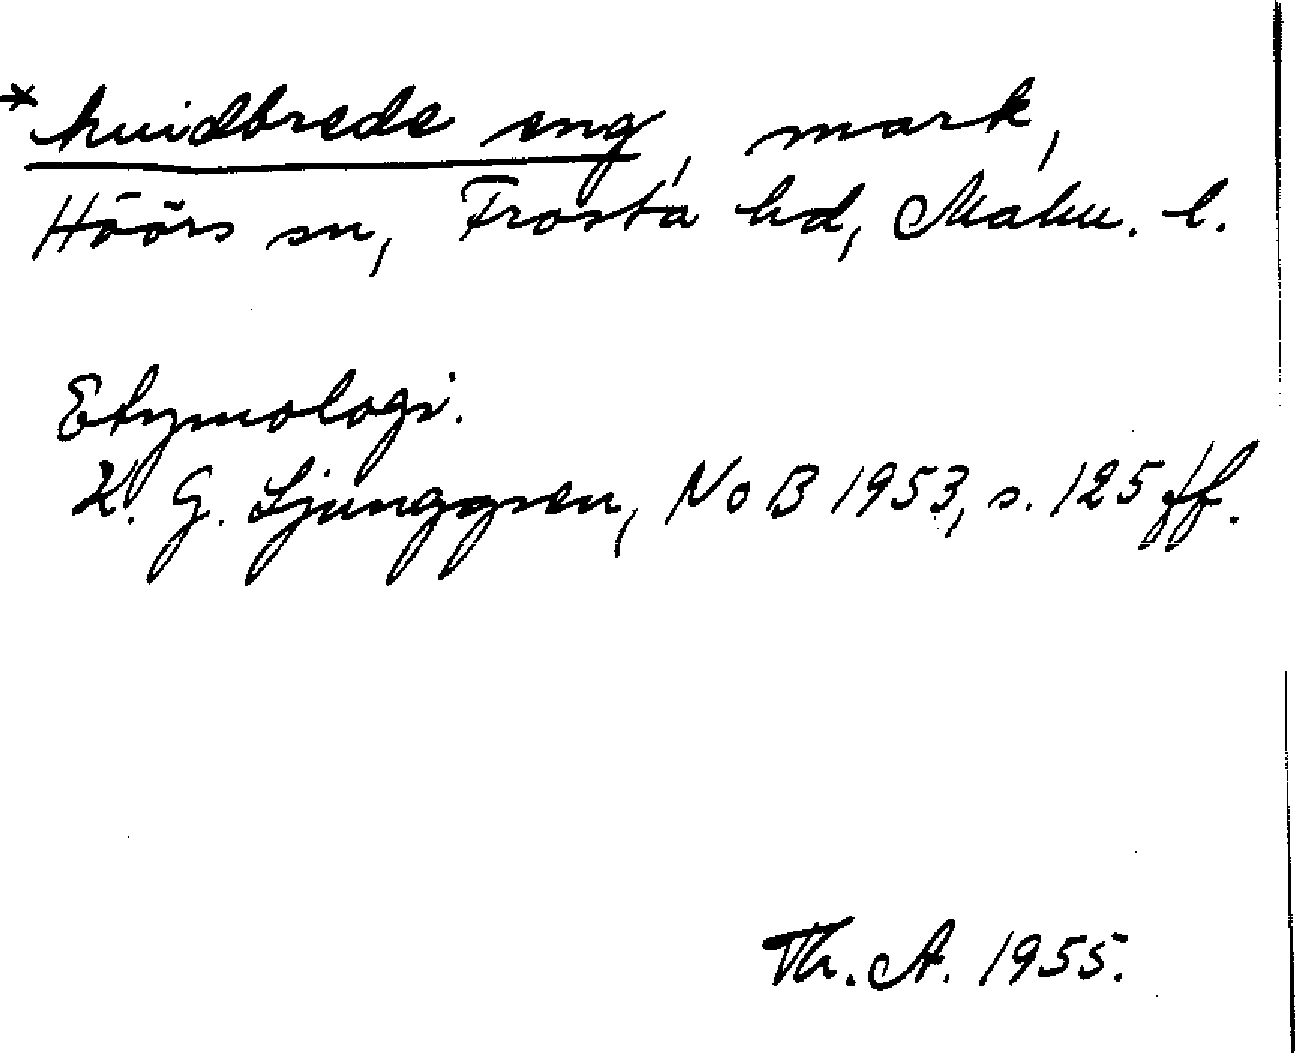 * huidbrede eng, mark,
Höörs sn, Frosta hd, Malm. l.
Etymologi.
K. G. Ljunggren, NoB 1953, s. 125 ff.
Th. A. 1955.